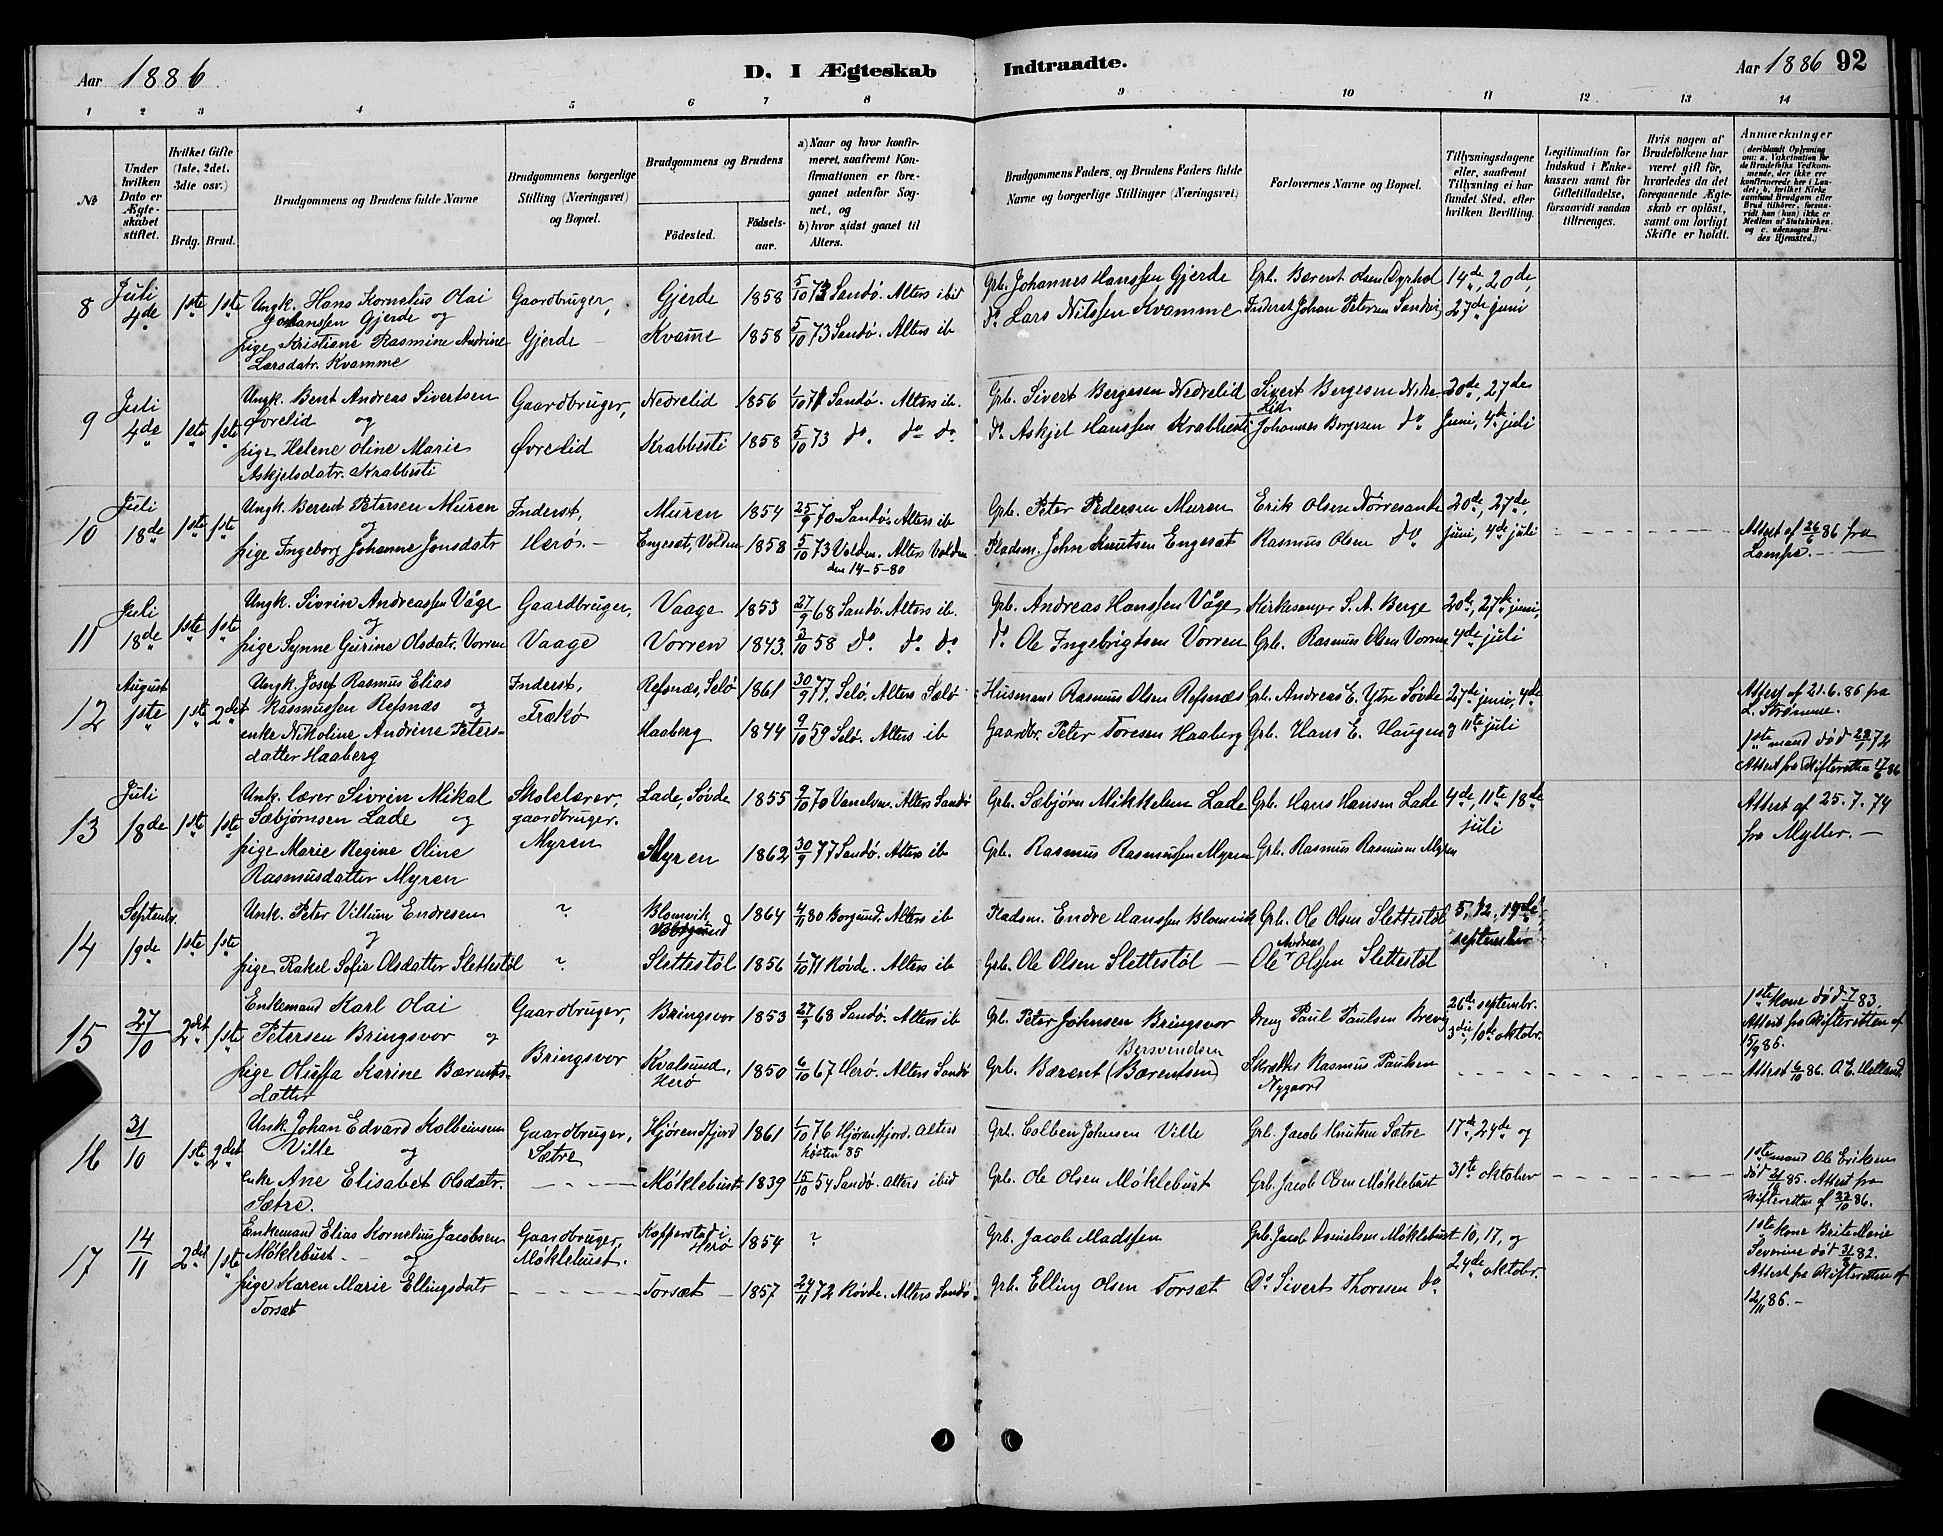 Aar 1886
D. I Ægteskab Indtraadte.
Aar 1886 92
1 2 3 4 5 6 7 8 9 10 11 12 13 14
№
Under hvilken Dato er Ægteskabet stiftet.
Hvilket Gifte (1ste, 2det, 3die osv.)
Brdg. Brud.
Brudgommens og Brudens fulde Navne
Brudgommens borgerlige Stilling (Næringsvei) og Bopæl.
Brudgommens og Brudens
Födested. Födselsaar.
a) Naar og hvor konfirmeret, saafremt Konfirmationen er foregaaet udenfor Sognet, og
b) hvor sidst gaaet til Alters.
Brudgommens Faders, og Brudens Faders fulde Navne og borgerlige Stillinger (Næringsvei)
Forlovernes Navne og Bopæl.
Tillysningsdagene eller, saafremt Tillysning ei har fundet Sted, efter hvilken Bevilling.
Legitimation for Indskud i Enkekassen samt for Giftetilladelse, forsaavidt saadan tiltrænges.
Hvis nogen af Brudefolkene har været gift før, hvorledes da det foregaaende Ægteskab er oplöst, samt om lovligt Skifte er holdt.
Anmærkninger (deriblandt Oplysning om: a. Vakcination for de Brudefolks Vedkommende, der ikke ere konfirmerede her i Landet; b. hvilket Kirkesamfund Brudgom eller Brud tilhörer, forsaavidt han (hun) ikke er Medlem af Statskirken, og c. udensogns Brudes Hjemsted.)
8 Juli 4de 1ste 1ste
Ungk. Hans Kornelius Olai
Johanssen Gjerde og
pige Kristiane Rasmine Andrine
Larsdatr. Kvamme
Gaardbruger,
Gjerde
Gjerde 1858 5/10 73 Sandö. Alters ibid
Kvame 1858 5/10 73 Sandö. Alters ib
Grb. Johannes Hanssen Gjerde
do Lars Nilssen Kvamme
Grb. Bærent Olsen Dyrhol
Inderst Johan Petersen Sandvi
14de, 20de,
27de juni
9 Juli 4de 1ste 1ste
Ungk. Bent Andreas Sivertsen
Øvrelid og
pige Helene Oline Marie
Askjelsdatr. Krabbesti
Gaardbruger,
Øvrelid
Nedrelid 1856 1/10 71 Sandö. Alters ib.
Krabbesti 1858 5/10 73 do. do do.
Grb. Sivert Bergesen Nedrelid
do Askjel Hanssen Krabbesti
Sivert Bergesen Nedre
lid
Johannes Bergesen do
20de, 27de
Juni, 4de juli
10 Juli 18de 1ste 1ste
Ungk. Berent Petersen Muren
og
pige Ingeborg Johanne Jonsdatr
Inderst,
Herö.
Muren 1854 25/9 70 Sandö. Alters ib
Engeset, Volden 1858 5/10 73 Volden. Alters Volden
den 14-5-80
Grb. Peter Pedersen Muren
Pladsm. John Knutsen Engeset
Erik Olsen Nörresande
Rasmus Olsen do
20de, 27de,
juni, 4de juli
Attest af 26/6 86 fra
Lampe.
11 Juli 18de 1ste 1ste
Ungk. Sivrin Andreassen Våge
og
pige Synne Gurine Olsdatr. Vorren
Gaardbruger,
Vaage
Vaage 1853 27/9 68 Sandö. Alters ib.
Vorren 1843. 3/10 58 do. do do.
Grb. Andreas Hanssen Våge
do. Ole Ingebrigtsen Vorren
Kirkesanger S. A. Berge
Grb. Rasmus Olsen Vorren
20de, 27de juni,
4de juli
12 August 1ste 1ste 2det
Ungk. Josef Rasmus Elias
Rasmussen Refsnæs og
enke Nikoline Andrine Peters-
datter Haaberg
Inderst,
Frækö
Refsnæs, Selö 1861 30/9 77. Selö. Alters Selö
Haaberg 1844 9/10 59 Selö. Alters ib
Husmand Rasmus Olsen Refsnæs
Gaardbr. Peter Toresen Haaberg
Grb. Andreas E. Ytre Søvde
Grb. Hans E. Haugen
27de juni, 4de
og 11te juli
Attest af 21.6.86 fra
L. Strømme.
1ste mand död 28/1 72
Attest fra Skifteretten 17/6 86
13 Juli 18de 1ste 1ste
Unk. lærer Sivrin Mikal
Sæbjörnsen Lade og
pige Marie Regine Oline
Rasmusdatter Myren
Skolelærer,
gaardbruger.
Myren
Lade, Søvde 1855 2/10 70 Vanelven. Alters Sandö
Myren 1862 30/9 77 Sandö. Alters ib
Grb. Sæbjörn Mikkelsen Lade
Grb. Rasmus Rasmussen Myren
Grb. Hans Hansen Lade
Grb. Rasmus Rasmusen Myren
4de, 11te 18de
juli
Attest af 25.7.74
fra Myller.
14 Septembr. 19de 1ste 1ste
Unk. Peter Villum Endresen
og
pige Rakel Sofie Olsdatter Slettestöl
?
?
Blomvik
Borgund 1864 4/11 80 Borgund. Alters ib
Slettestöl 1856 1/10 71 Rövde. Alters ib
Pladsm. Endre Hanssen Blomvik
Grb. Ole Olsen Slettestöl
Grb. Ole Olsen Slettestöl
Ole Andreas Olssen Slettestöl
5, 12, 19de
september
15 27/10 2det 1ste
Enkemand Karl Olai
Petersen Bringsvor og
pige Oluffa Karine Bærents-
datter
Gaardbruger,
Bringsvor
Bringsvor 1853 27/9 68 Sandö. Alters ib
Kvalsund,
Herö 1850 6/10 67 Herö. Alters Sandö
Grb. Peter Johnsen Bringsvor
Bersvendsen
Grb. Bærent (Bærentsen)
Dreng Paul Paulsen Brevig
Skrædder Rasmus Paulsen
Nygaard
26de septembr.
3die, 10de oktobr.
1ste Kone död 7/1 83.
Attest fra Skifteretten af
15/9 86.
Attest 6/10 86. A. E. Helland
16 31/10 1ste 2det
Unk. Johan Edvard Kolbeinsen
Ville og
enke Ane Elisabet Olsdatr.
Sætre.
Gaardbruger,
Sætre
Hjørendfjord 1861 1/10 76 Hjørendfjord. Alters
høsten 85
Møklebust 1839 15/10 54 Sandö. Alters ibid
Grb. Colben Johnsen Ville
Grb. Ole Olsen Møklebust
Grb. Jacob Knutsen Sætre
Grb. Jacob Olsen Møklebust
17de, 24de og
31te oktober
1ste mand Ole Eriksen
död 85. Attest fra
Skifteretten af 22/10 86.
17 14/11 2det 1ste
Enkemand Elias Kornelius Jacobsen
Møklebust og
pige Karen Marie Ellingsdatr
Torsæt
Gaardbruger,
Møklebust.
Kopperstad i
Herö 1854 ?
Torsæt 1857 24/11 72 Rövde. Alters Sandö.
Grb. Jacob Madssen
Grb. Elling Olsen Torsæt
Grb. Jacob Danielsen Møklebust
Do Sivert Thoresen do
10, 17, og
24de oktobr.
1ste Kone Brite Marie
Severine död 82.
Attest fra Skifteretten af
12/11 86.